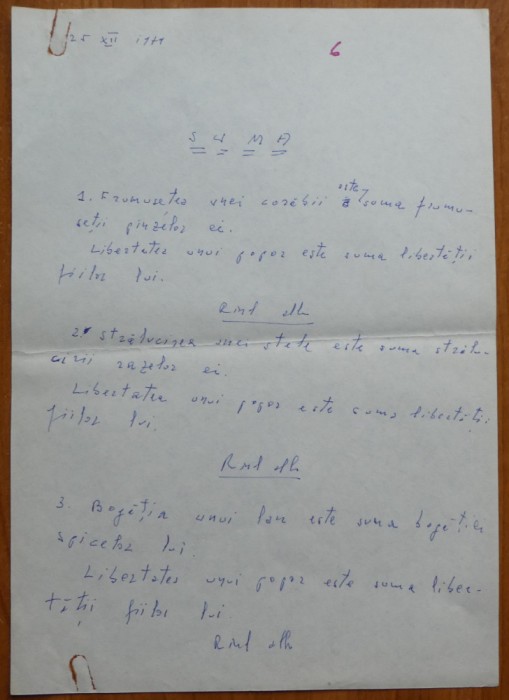 25 XII 1989
6
S U M A
1. Frumusețea unei corăbii este suma frumu-
seții pînzelor ei.
Libertatea unui popor este suma libertății
fiilor lui.
Rînd alb
2. Strălucirea unei stele este suma strălu-
cirii razelor ei.
Libertatea unui popor este suma libertății
fiilor lui.
Rînd alb
3. Bogăția unui lan este suma bogăției
spicelor lui.
Libertatea unui popor este suma liber-
tății fiilor lui.
Rînd alb